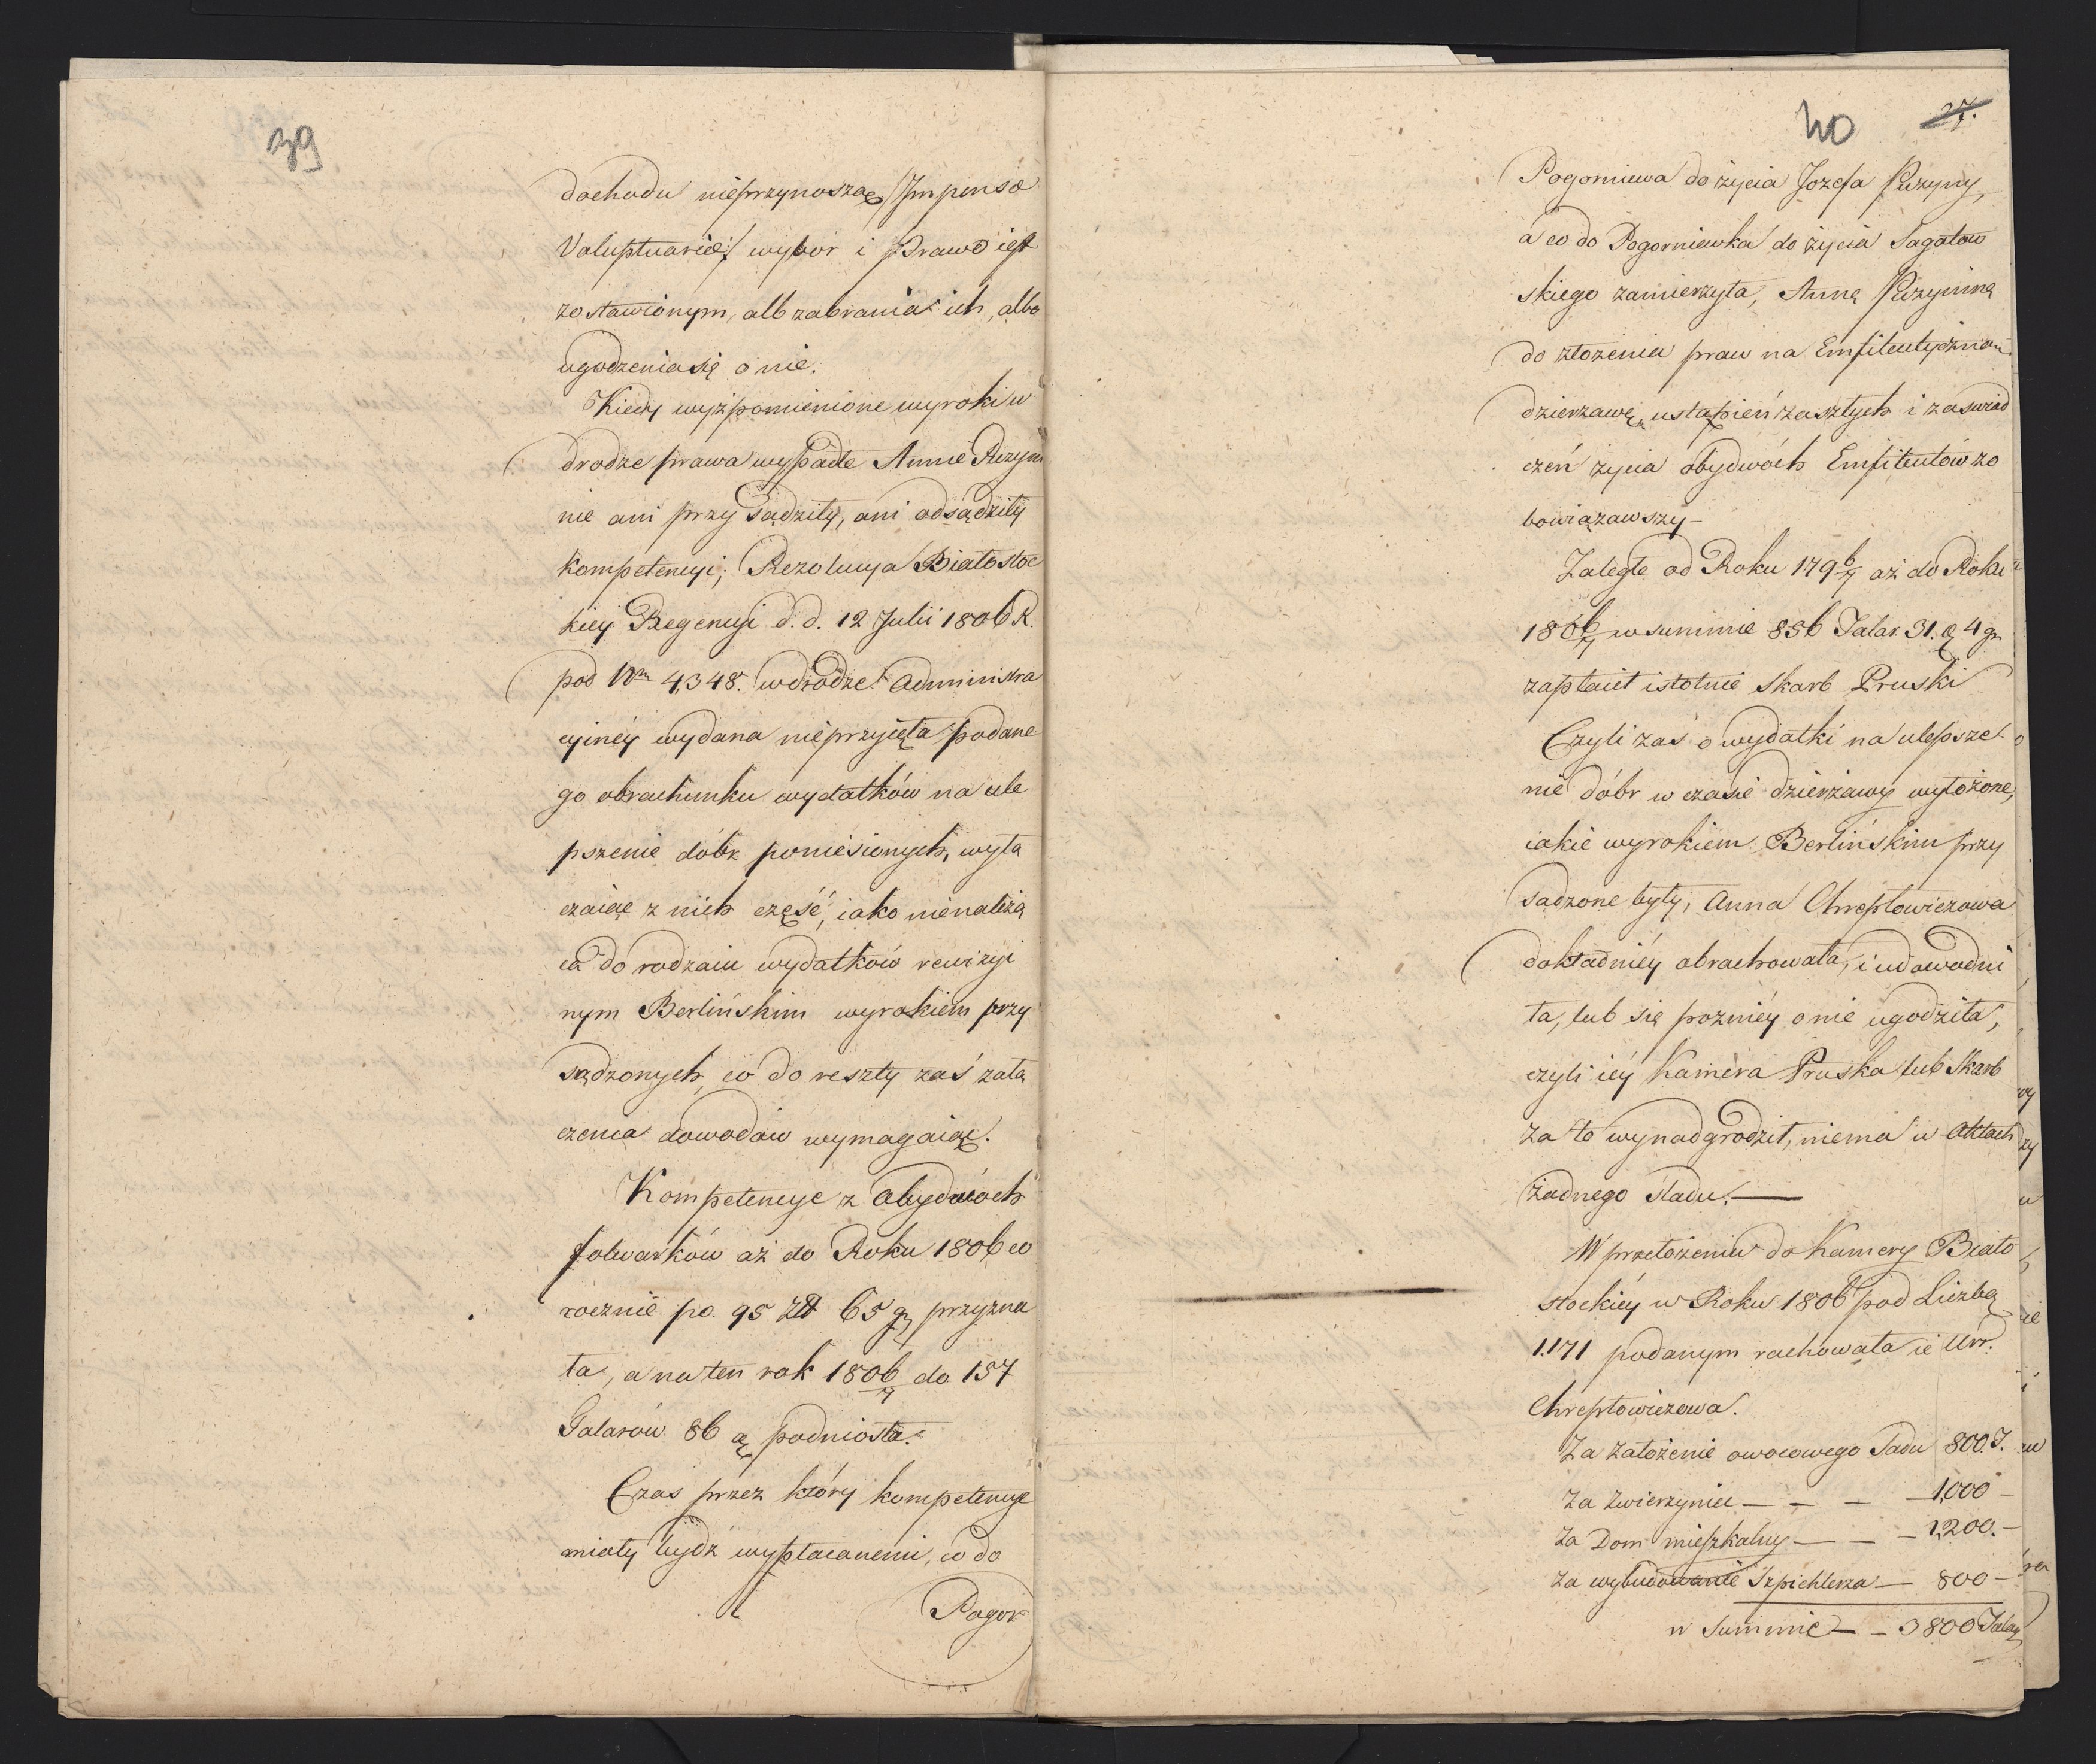 39
dochodu nieprzynoszące /Impensæ
Voluptuariæ:/ wybór i Prawo iest
zostawionym, alb zabrania ich, albo
ugodzenia się o nie.
Kiedy wyżpomienione wyroki w
drodze prawa wypadłe Annie Puzyni
nie ani przysądziły, ani odsądziły
kompetencyi; Rezolucya Białostoc
kiey Regencyi d. d. 12 Julii 1806 R.
pod Nrm 4,348. w drodze administra
cyinéy wydana nieprzyięła podane
go obrachunku wydatków na ule
pszenie dóbr poniesionych, wyłą
czaiąc z nich część, iako nienależą
cą do rodzaiu wydatków rewizyi
nym Berlińskim wyrokiem przy
sądzonych, co do reszty zaś załą
czenia dowodów wymagaiąc.
Kompetencye z obydwóch
folwarków aż do Roku 1806 co
rocznie po 95 65 gr przyzna
ła, a na ten rok 1806/7 do 157
Talarów 86 podniosła.
Czas przez który kompetencye
miały bydź wypłacanemi, co do
Pogor
40 27.
Pogorniewa do życia Jozefa Puzyny,
a co do Pogorniewka do życia Sagatow
skiego zamierzyła, Annę Puzyninę
do złożenia praw na Emfiteutyczną
dzierzawę, ustąpień zaszłych i zaświad
czeń życia obydwóch Emfiteutów zo
bowiązawszy –
Zaległe od Roku 1796/7 aż do Roku
1806/7 w summie 856 Talar. 31. 4 gr
zapłacił istotnie Skarb Pruski
Czyli zaś o wydatki na ulepsze
nie dóbr w czasie dzierżawy wyłożone,
iakie wyrokiem Berlińskim przy
sądzone były, Anna Chreptowiczowa
dokładniéy obrachowała, i udowodni
ła, lub się pozniéy o nie ugodziła,
czyli iéy Kamera Pruska lub Skarb
za to wynadgrodził, niema w Aktach
żadnego śladu. —
W przełożeniu do Kamery Biało
stockiéy w Roku 1806 pod Liczbą
1.171 podanym rachowała ie Ur.
Chreptowiczowa.
Za założenie owocowego Sadu 800. T.
za zwierzyniec – – – 1,000 –
za Dom mieszkalny – – – 1,200. –
za wybudowanie Szpichlerza – 800 –
w Summie – – 3800 Talar